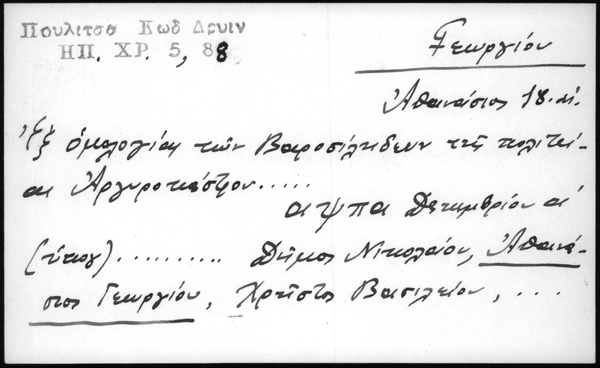 Πουλιτσα Κωδ Δρυιν
ΗΠ. ΧΡ. 5, 88
Γεωργίου
Ἀθανάσιος 18. αἰ.
Ἐξ ὁμολογίας τῶν Βαροσιλήδων τῆς πολιτεί-
ας Ἀργυροκάστρου.....
αψπα Δεκεμβρίου α΄
(ὑπογ).......... Δῆμος Νικολάου, Ἀθανά-
σιος Γεωργίου, Χρῆστος Βασιλείου, ...